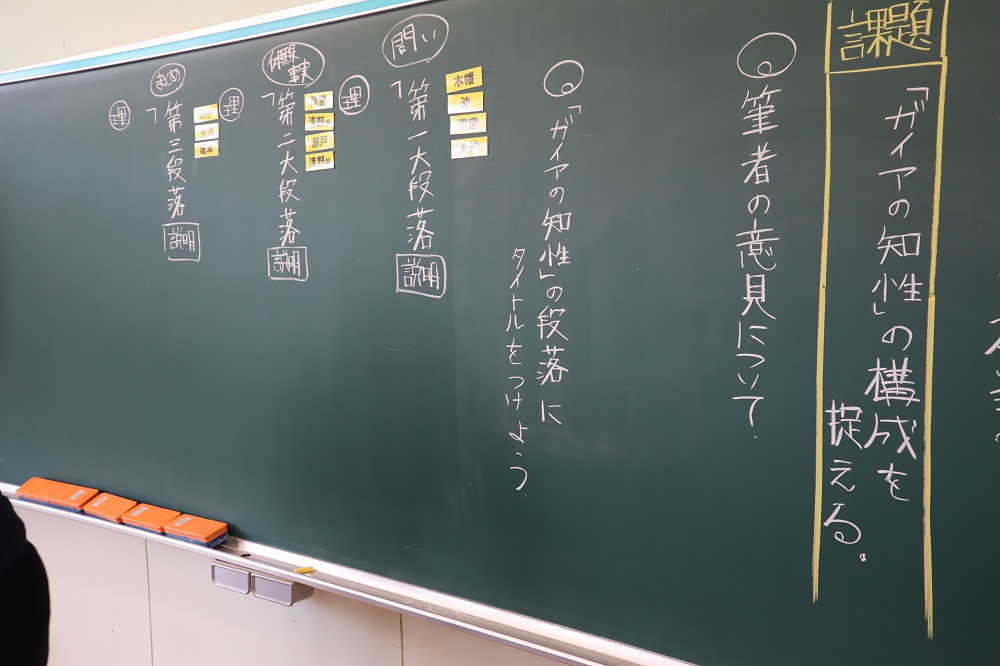 課題
「ガイアの知性」の構成を
捉える。
筆者の意見について
「ガイアの知性」の段落に
タイトルをつけよう
問い
「第一大段落 説明
木幡
沖
理
体験
事実
「第二大段落 説明
浅野
瀬戸
浅野
理
まとめ
「第三段落 説明
坂本
理